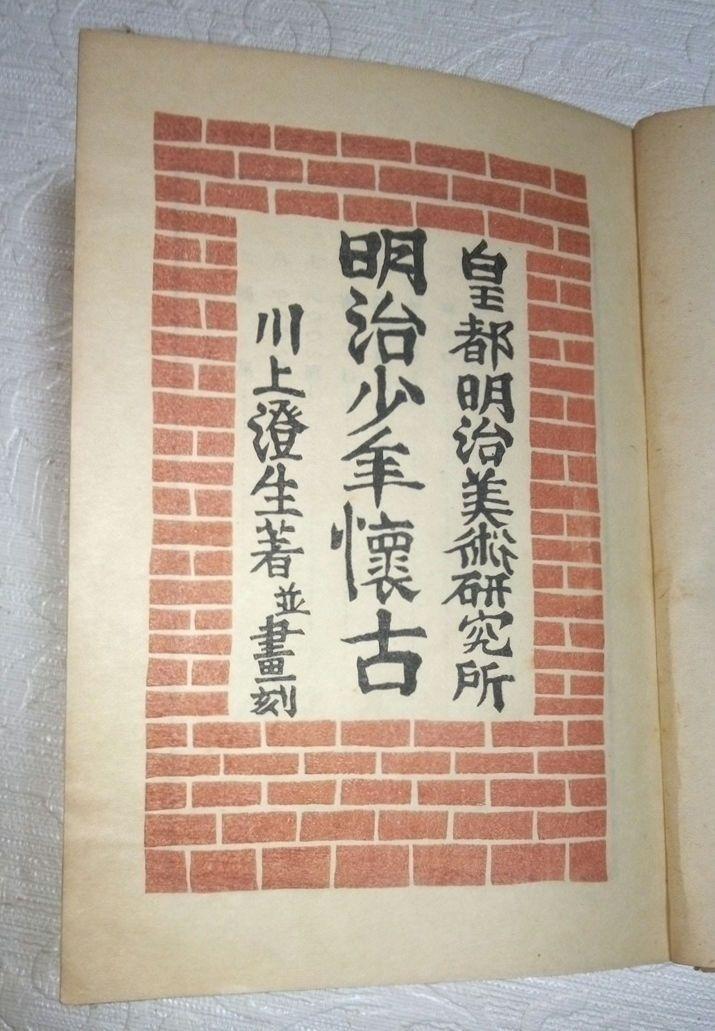 皇都明治美術研究所
明治少年懐古
川上澄生著並畫刻